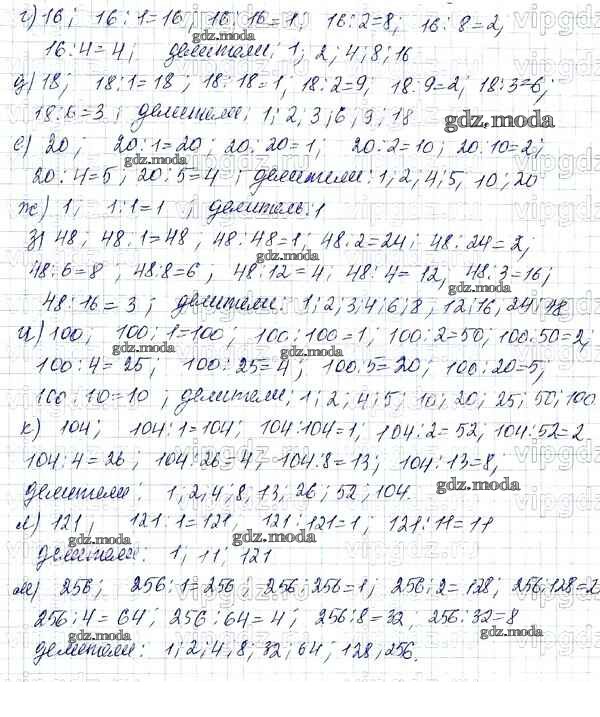 г) 16; 16:1=16; 16:16=1; 16:2=8; 16:8=2,
16:4=4; делители: 1; 2; 4; 8; 16
gdz.moda
д) 18; 18:1=18; 18:18=1, 18:2=9, 18:9=2; 18:3=6;
18:6=3; делители: 1; 2; 3; 6; 9; 18
gdz.moda
е) 20, 20:1=20; 20:20=1; 20:2=10; 20:10=2;
gdz.moda
20:4=5; 20:5=4; делители: 1; 2, 4; 5, 10; 20
ж) 1; 1:1=1; делитель: 1
gdz.moda
з) 48; 48:1=48, 48:48=1; 48:2=24; 48:24=2,
gdz.moda
48:6=8, 48:8=6, 48:12=4; 48:4=12, 48:3=16;
48:16=3; делители: 1; 2; 3; 4; 6; 8, 12; 16, 24; 48
и) 100; 100:1=100; 100:100=1; 100:2=50; 100:50=2;
gdz.moda
gdz.moda
100:4=25; 100:25=4; 100:5=20; 100:20=5;
100:10=10; делители: 1; 2; 4; 5; 10; 20; 25; 50; 100
к) 104; 104:1=104; 104:104=1; 104:2=52, 104:52=2
104:4=26; 104:26=4; 104:8=13; 104:13=8;
gdz.moda
делители: 1; 2; 4; 8; 13; 26; 52; 104.
л) 121, 121:1=121, 121:121=1; 121:11=11
gdz.moda
gdz.moda
делители: 1; 11; 121
м) 256; 256:1=256; 256:256=1; 256:2=128; 256:128=2
256:4=64; 256:64=4; 256:8=32, 256:32=8
gdz.moda
gdz.moda
делители: 1; 2; 4; 8; 32; 64; 128, 256.